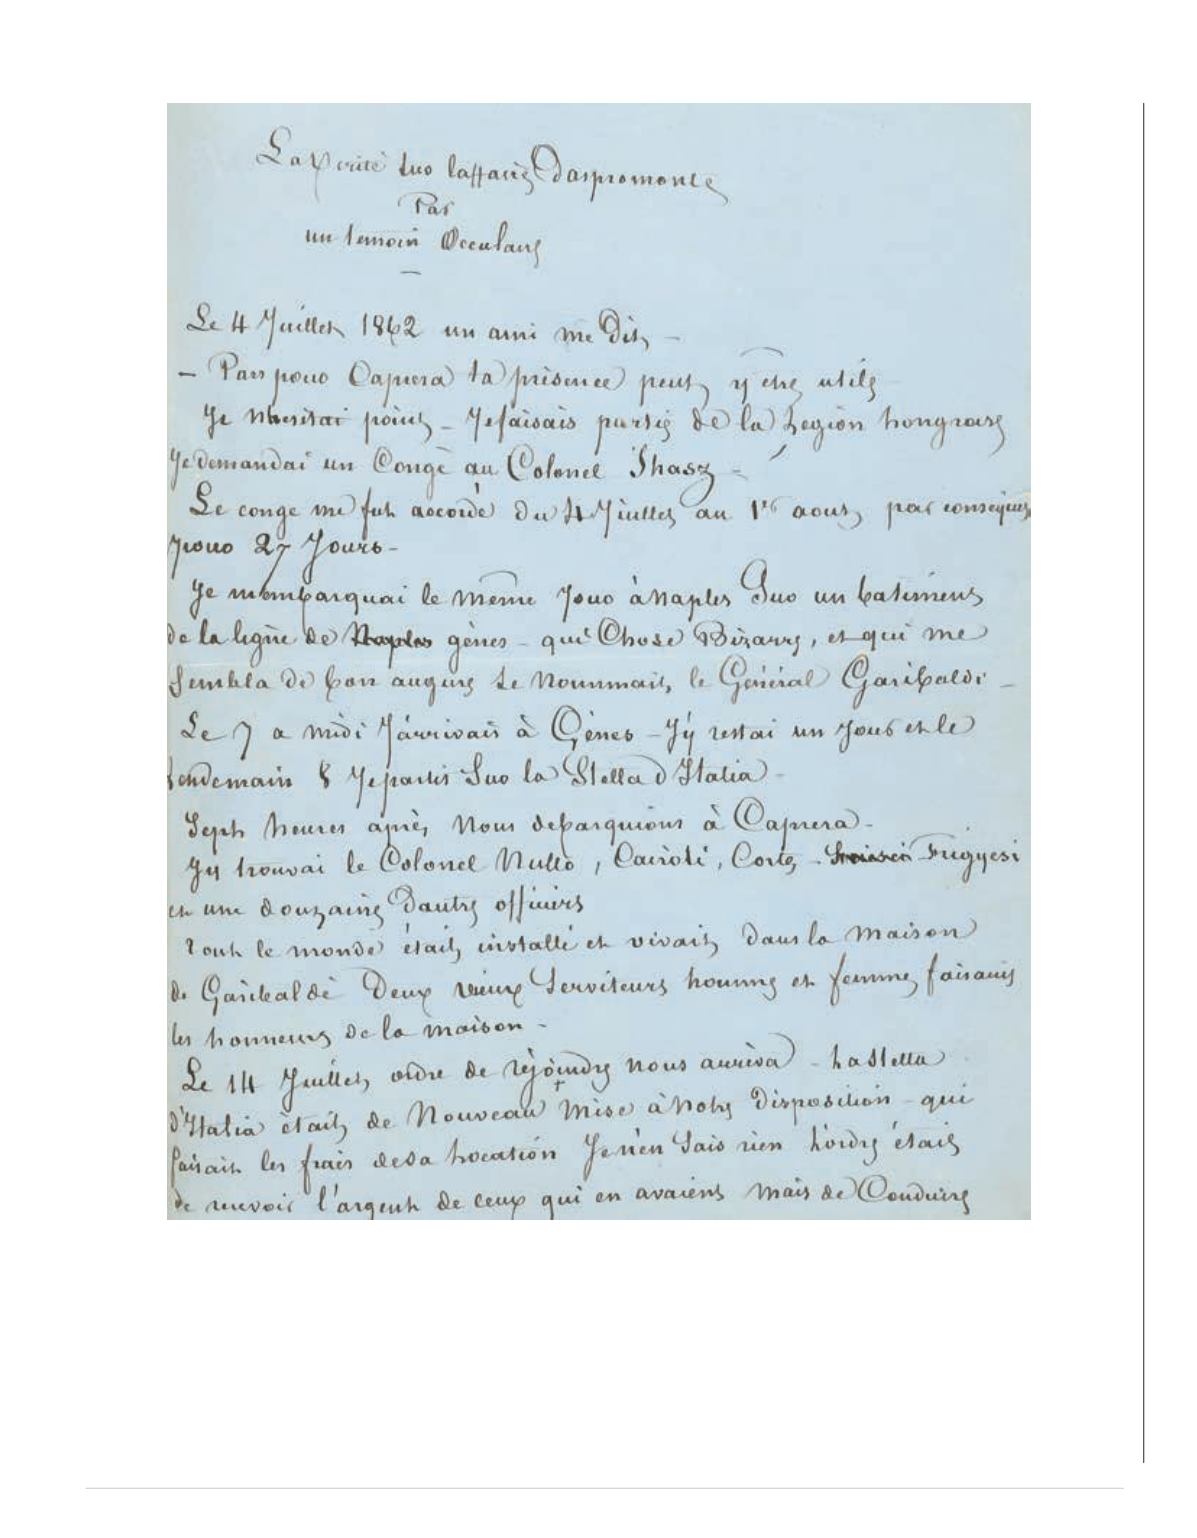 La Verité sur laffaire Daspromonte
Par
un temoin Occulaire
Le 4 Juillet 1862 un ami me Dit –
– Pars pour Caprera ta présence peut y être utile
Je nhesitai point – Je faisais partie de la Legion hongroise
Je demandai un Congé au Colonel Ihasz –
Le congé me fut accordé du 4 Juillet au 1er aout, par conséquent
pour 27 Jours –
Je membarquai le même Jour à Naples Sur un batiment
de la ligne de Naples gènes – qui Chose Bizarre, et qui me
Sembla de bon augure se nommait le Général Garibaldi –
Le 7 a midi J'arrivais à Gènes – J'y restai un Jour et le
lendemain 8 Je partis Sur la Stella d'Italia –
Sept heures après nous debarquions à Caprera –
J'y trouvai le Colonel Nullo, Cairoli, Corte – Frigyesi
et une douzaine Dautre officiers
Tout le monde était installé et vivait dans la maison
de Garibaldi Deux vieux Serviteurs homme et femme faisaient
les honneurs de la maison –
Le 14 Juillet, ordre de rejoindre nous arriva – La Stella
d'Italia était de Nouveau Mise à Notre Disposition – qui
faisait les frais de sa Location Je n'en Sais rien L'ordre était
de recevoir l'argent de ceux qui en avaient mais de Conduire